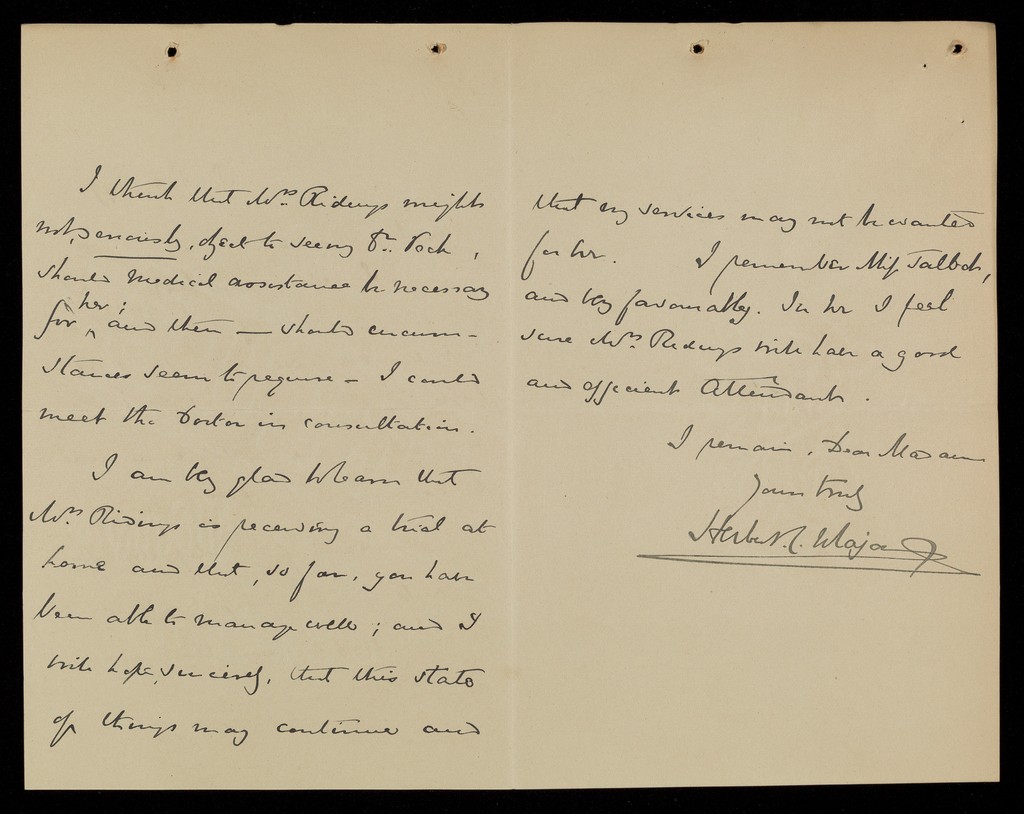 I think that Mrs. Ridings might
not, seriously, object to seeing Dr. Rock,
should medical assistance be necessary
for her; and then — should circum-
stances seem to require — I could
meet the Doctor in consultation.
I am very glad to learn that
Mrs. Ridings is receiving a trial at
home and that, so far, you have
been able to manage well; and I
will hope, sincerely, that this state
of things may continue and
that my services may not be wanted
for her. I remember Miss Talbot,
and very favourably. In her I feel
sure Mrs. Ridings will have a good
and efficient Attendant.
I remain, Dear Madam
Yours truly
Herbert C. Major